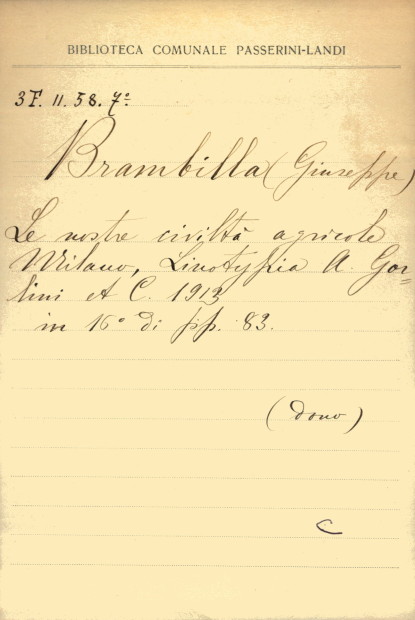 BIBLIOTECA COMUNALE PASSERINI-LANDI
3F. 11. 58. 7º
Brambilla (Giuseppe)
Le nostre civiltà agricole
Milano, Linotypia A. Gor=
lini et C. 1913
in 16º di pp. 83.
(dono)
C